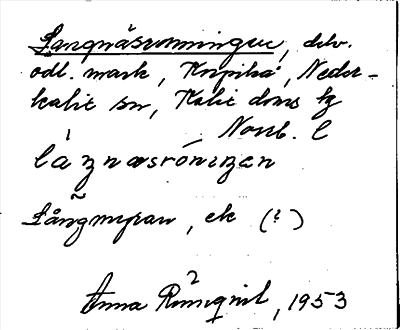 Långnäsrönningen, delv.
odl. mark, Korpikå, Neder-
kalix sn, Kalix doms hg
Norrb. l
Långmyran, ek (?)
Anna Rönnqvist, 1953